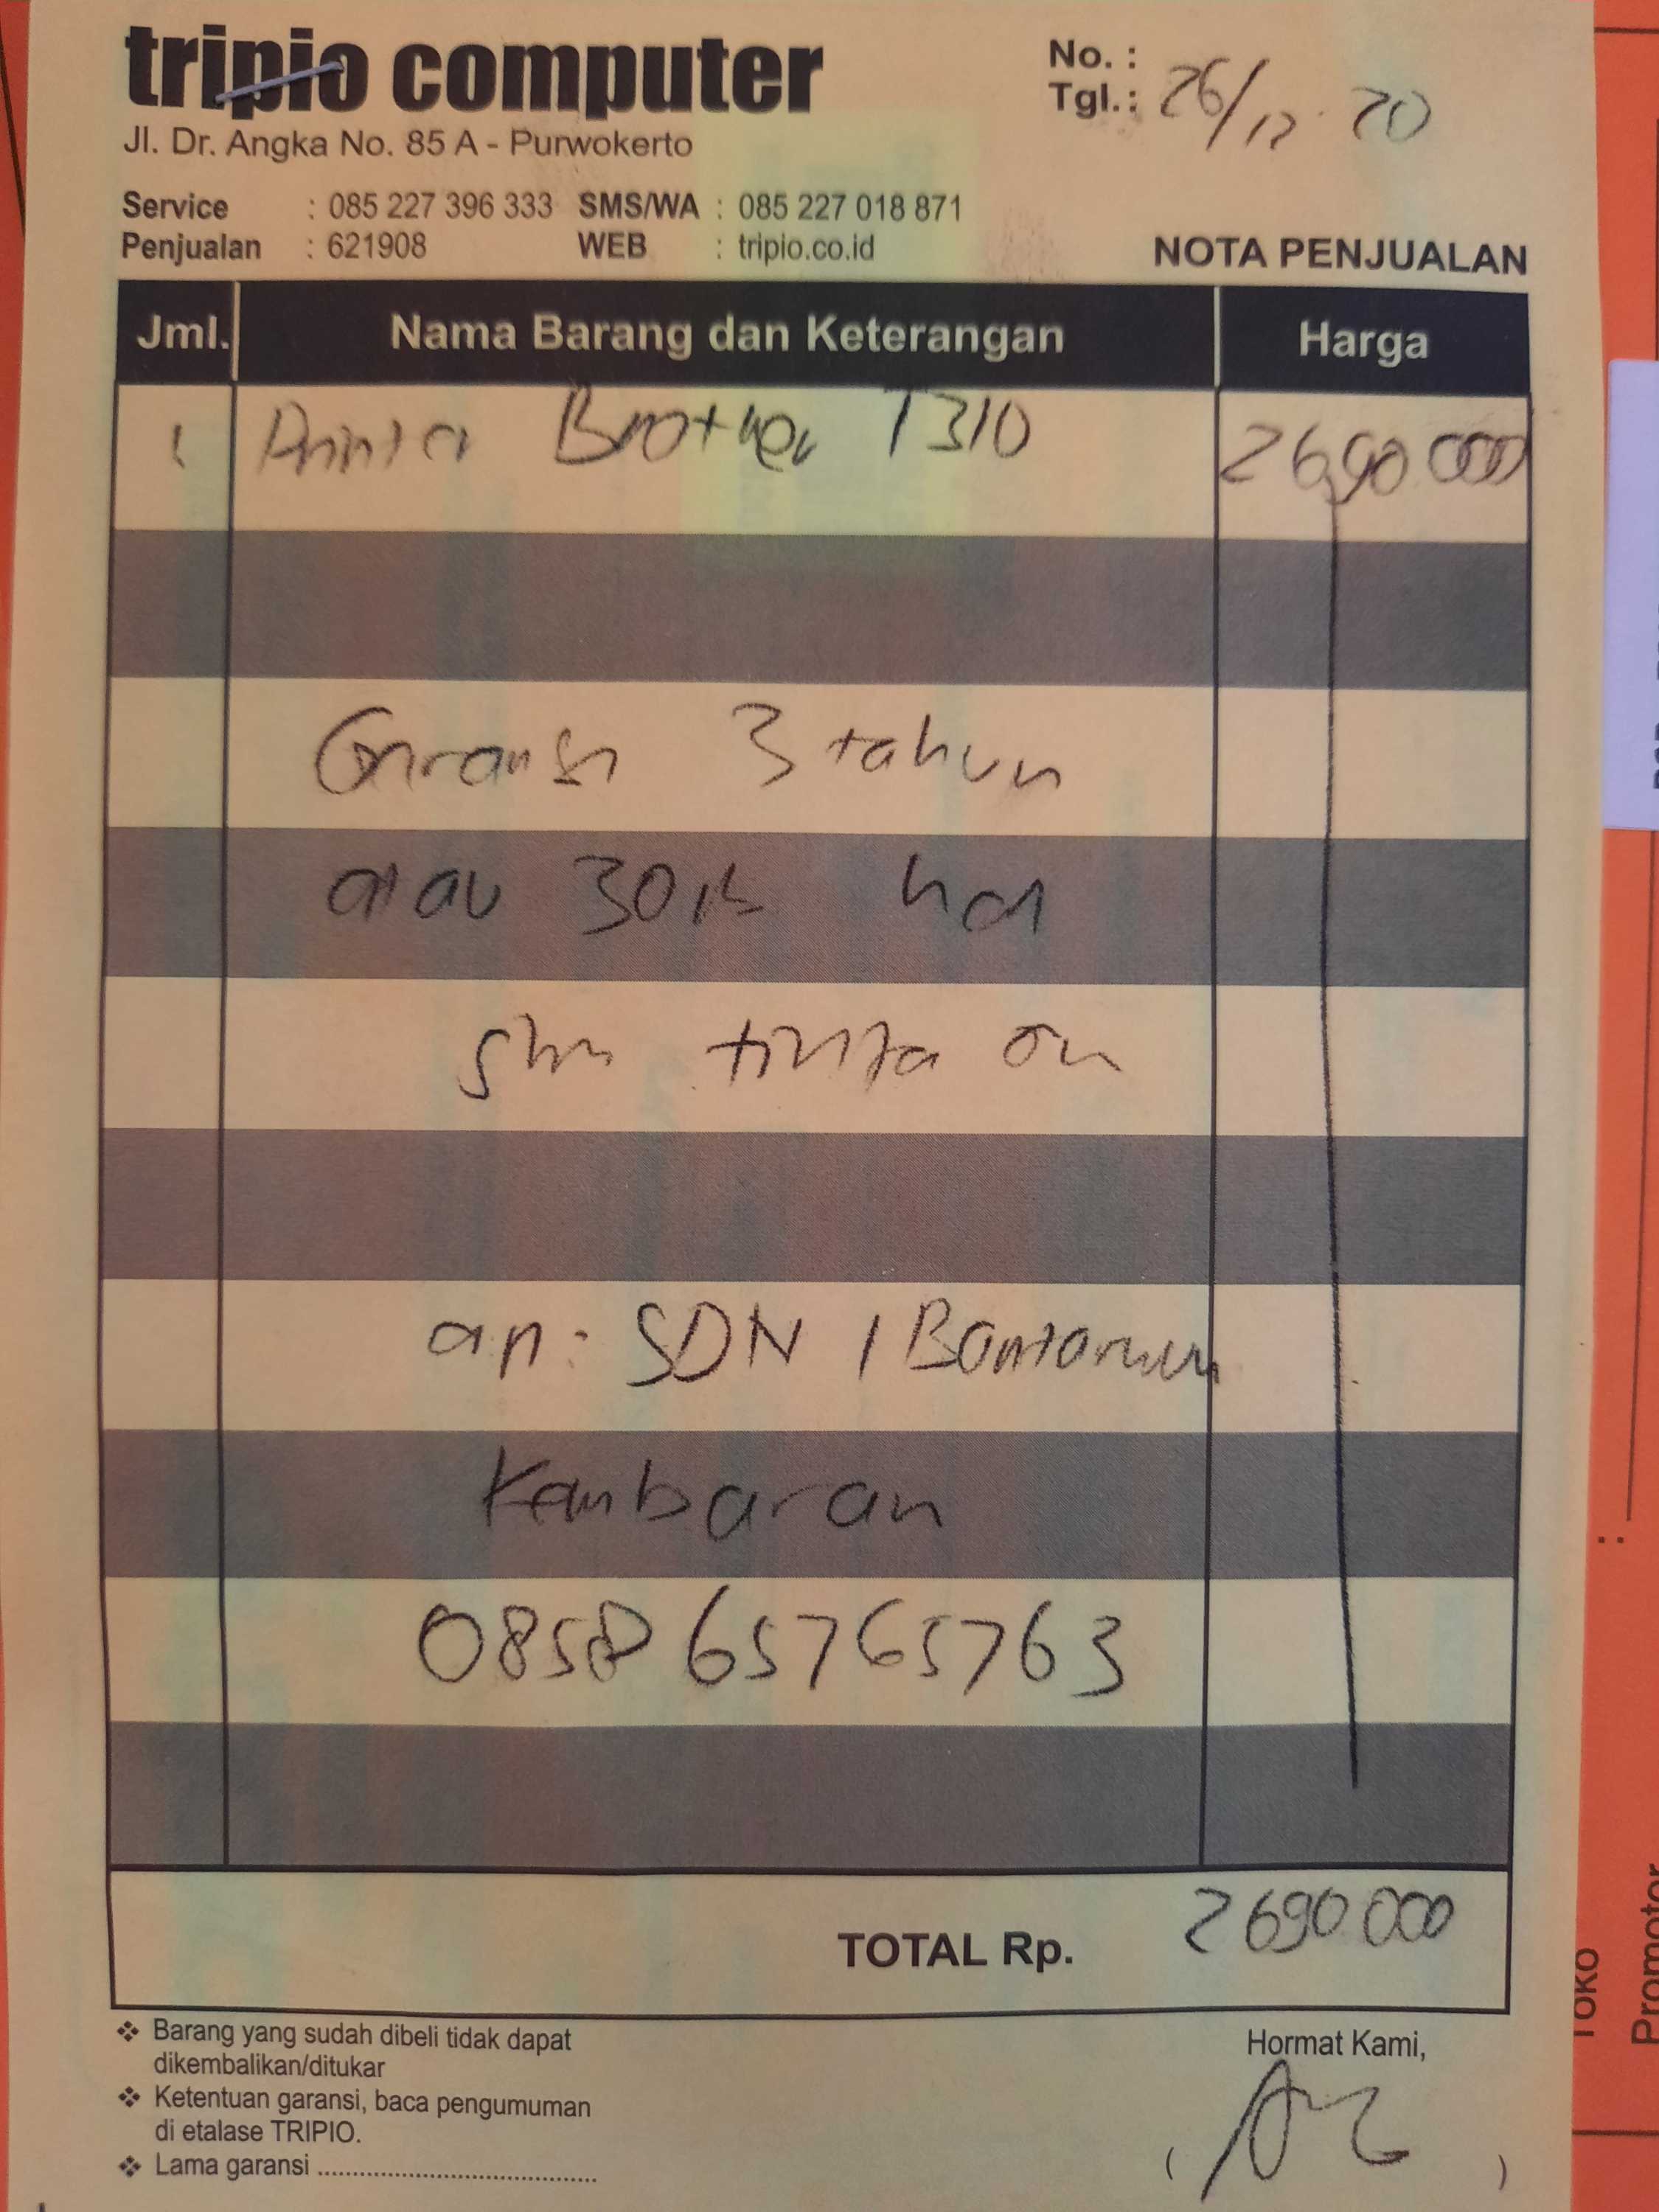 tripio computer
Jl. Dr. Angka No. 85 A - Purwokerto
No. :
Tgl. : 26/12 20
Service : 085 227 396 333 SMS/WA : 085 227 018 871
Penjualan : 621908 WEB : tripio.co.id
NOTA PENJUALAN
Jml. Nama Barang dan Keterangan Harga
1 Printer Brother T310 2690.000
Garansi 3 tahun
atau 30rb hal
tinta ori
an : SDN 1
Kembaran
0858 65765763
TOTAL Rp. 2690.000
Barang yang sudah dibeli tidak dapat
dikembalikan/ditukar
Ketentuan garansi, baca pengumuman
di etalase TRIPIO.
Lama garansi ..............................
Hormat Kami,
( )
TOKO
Promotor